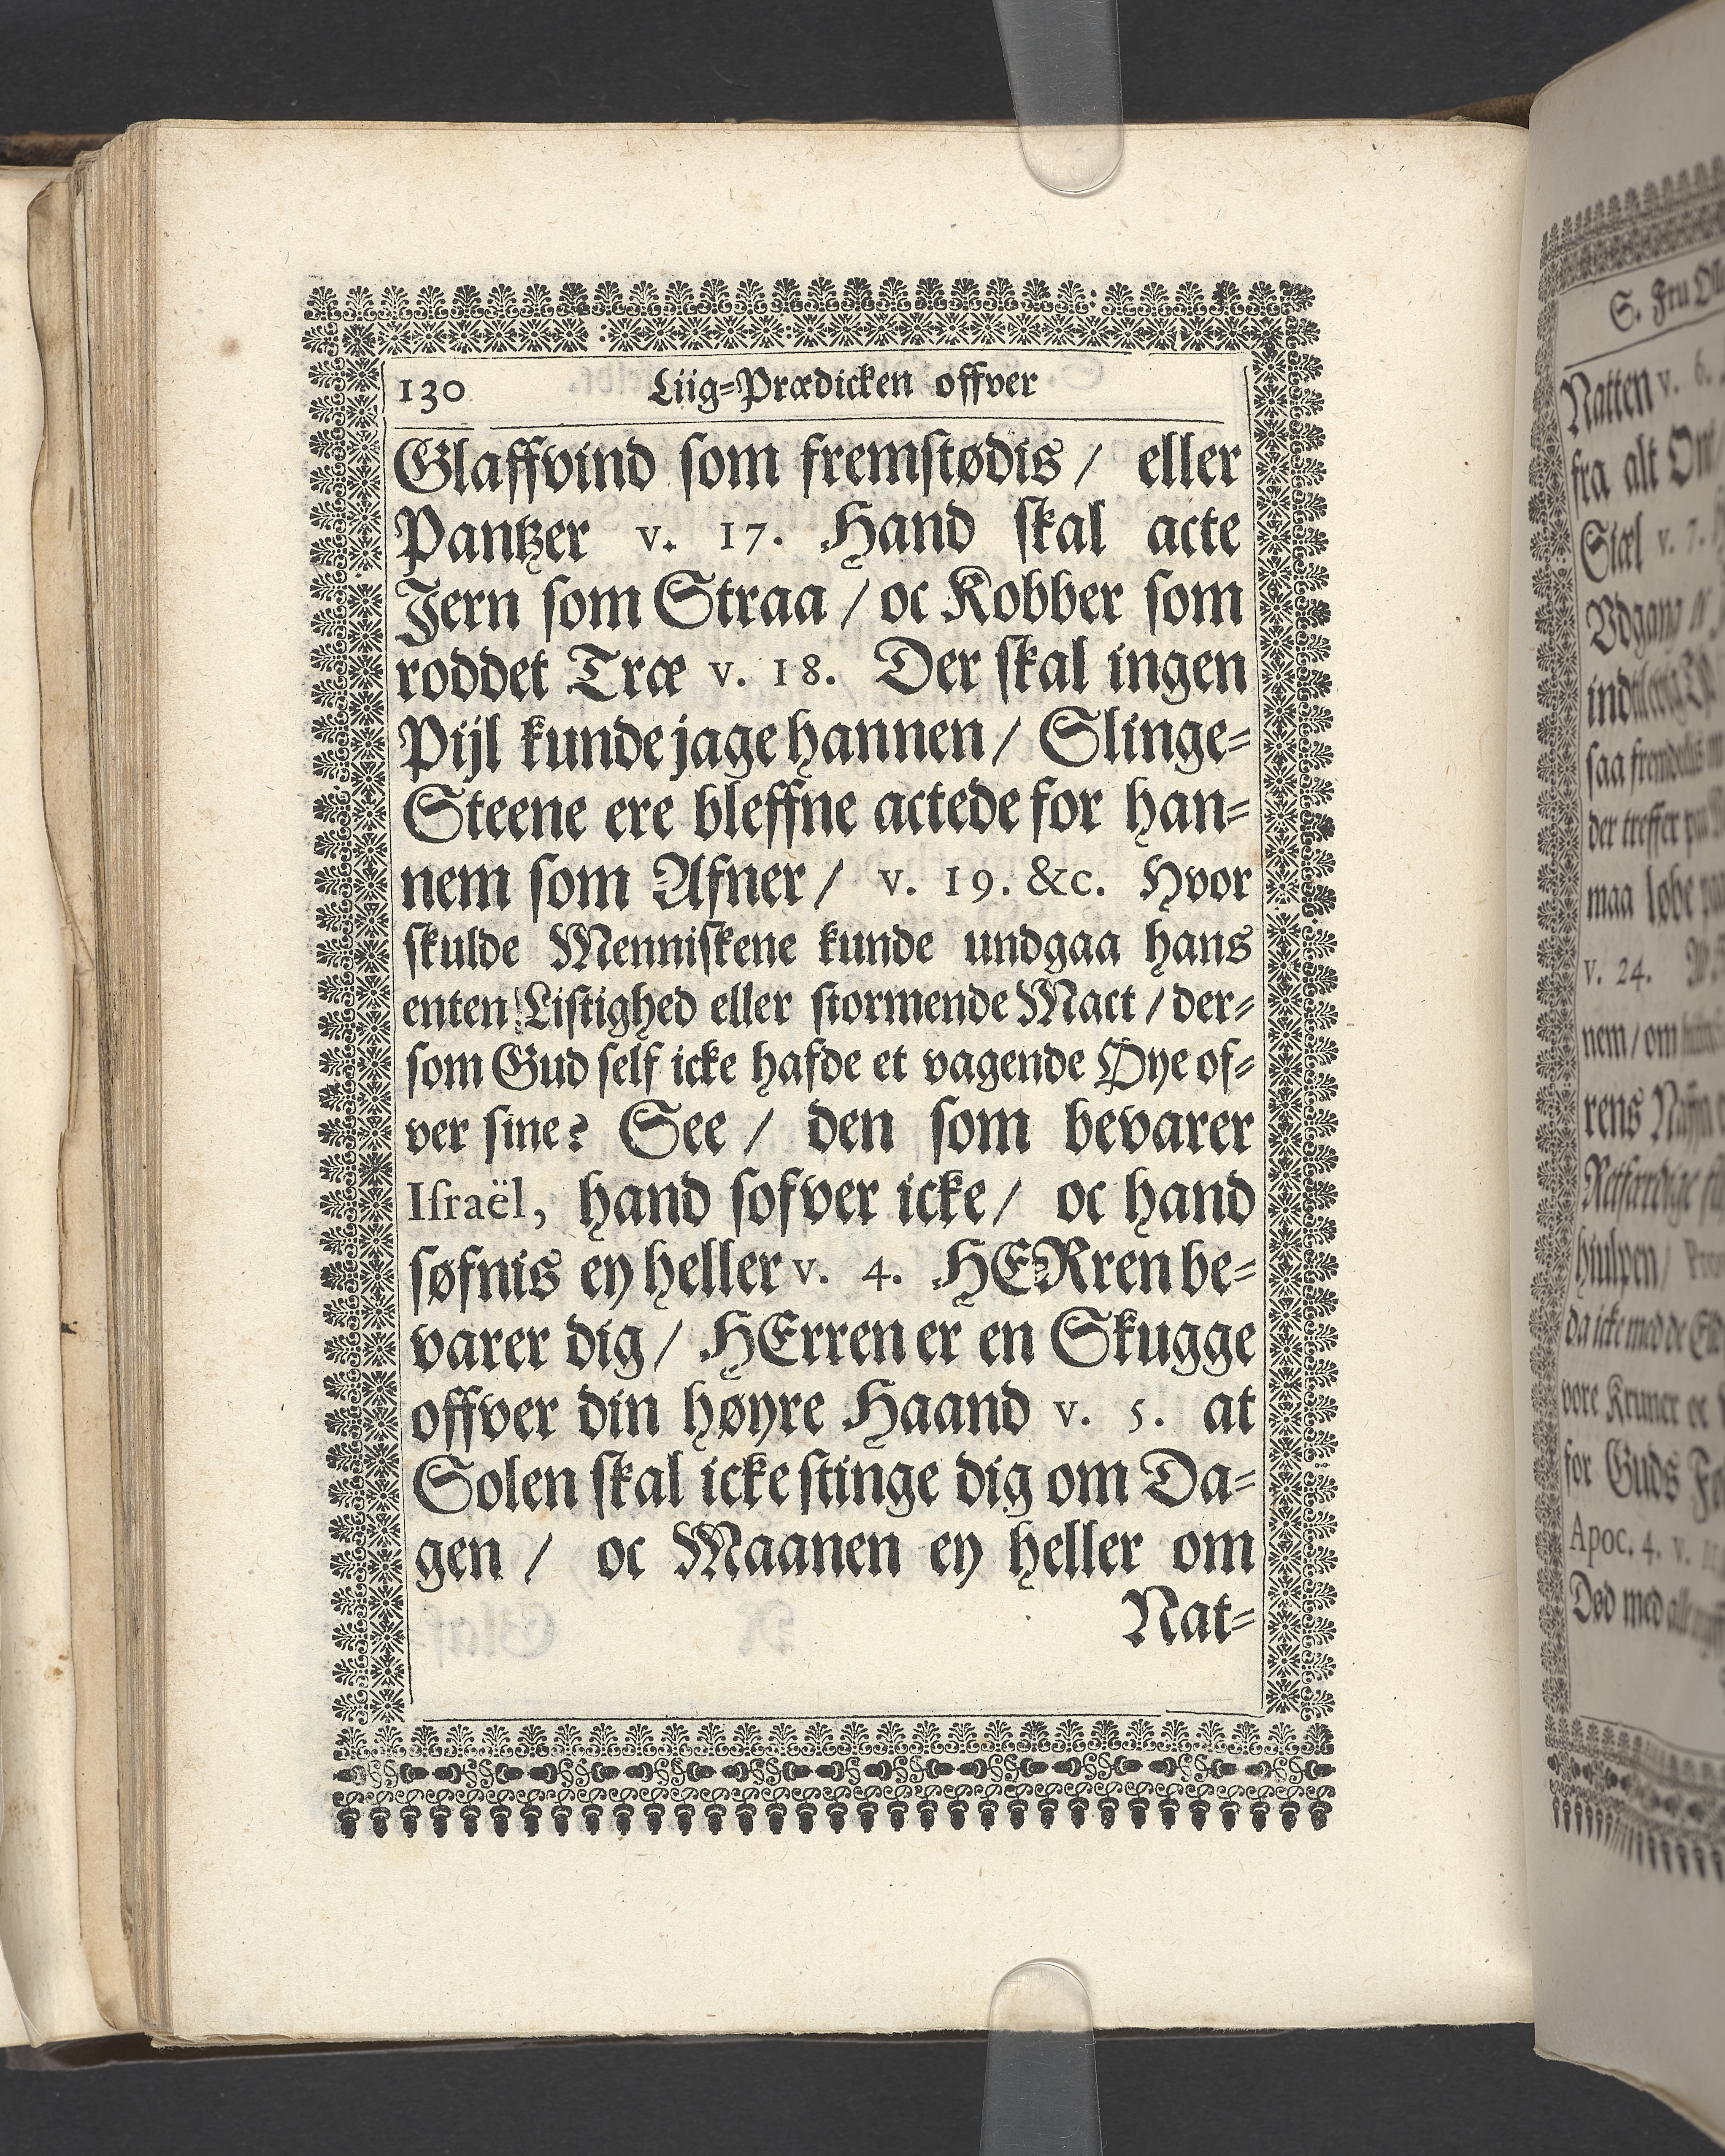 130 Liig=Prædicken offver
Glaffvind som fremstødis / eller
Pantzer v. 17. Hand skal acte
Jern som Straa / oc Kobber som
roddet Træ v. 18. Der skal ingen
Pijl kunde jage hannen / Slinge=
Steene ere bleffne actede for han=
nem som Afner / v. 19. &c. Hvor
skulde Menniskene kunde undgaa hans
enten Listighed eller stormende Mact / der=
som Gud self icke hafde et vagende Øye of=
ver sine? See / den som bevarer
Israël, hand sofver icke / oc hand
søfnis ey heller v. 4. HERren be=
varer dig / HErren er en Skugge
offver din høyre Haand v. 5. at
Solen skal icke stinge dig om Da=
gen / oc Maanen ey heller om
Nat=
S. Fru
Natten v. 6.
fra alt Ont
Siæl v. 7.
Vdgang oc
der treffer
maa løbe
v. 24.
nem / om
rens
hiulpen /
da icke med de
vore Kruner oc
for Guds
Apoc. 4. v.
Død med